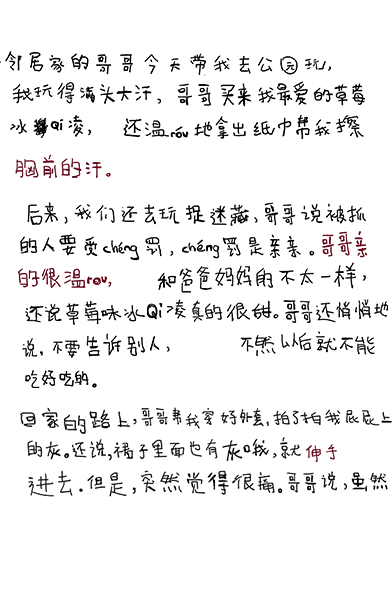 邻居家的哥哥今天带我去公园玩，
我玩得满头大汗，哥哥买来我最爱的草莓
冰Qi凌，还温róu地拿出纸巾帮我擦
胸前的汗。
后来，我们还去玩捉迷藏，哥哥说被抓
的人要受chéng罚，chéng罚是亲亲。哥哥亲
的很温rou，和爸爸妈妈的不太一样，
还说草莓味冰Qi凌真的很甜。哥哥还悄悄地
说，不要告诉别人，不然以后就不能
吃好吃的。
回家的路上，哥哥帮我穿好外套，拍了拍我屁屁上
的灰。还说，裙子里面也有灰哦，就伸手
进去。但是，突然觉得很痛。哥哥说，虽然